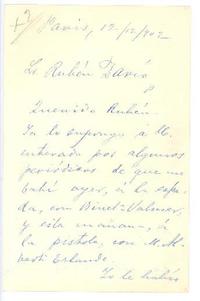 Paris, 12/12/902
Sr. Rubén Darío
Querido Rubén:
Ya lo supongo a U.
enterado por algunos
periódicos de que me
batí ayer, á la espa-
da, con Binet-Valmer,
y esta mañana, á
la pistola, con M. Al-
berti Erlande.
Yo le había